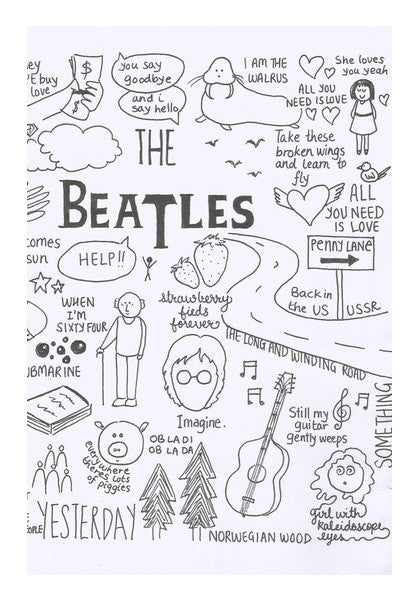 ey
PE buy
love
$
$
you say
goodbye
and i
say hello
I AM THE
WALRUS
She loves
you yeah
ALL YOU
NEED IS LOVE
THE
BEATLES
Take these
broken wings
and learn to
fly
ALL
YOU NEED
IS LOVE
PENNY LANE
comes
sun
HELP!!
Back in
the US
USSR
strawberry
fieds
forever
WHEN
I'M
SIXTY FOUR
THE LONG AND WINDING ROAD
UBMARINE
Imagine.
Still my
guitar
gently weeps
SOMETHING
OBLADI
OB LA DA
everywhere
theres lots
of piggies
OPLE
YESTERDAY
NORWEGIAN WOOD
Girl with
kaleidoscope
eyes